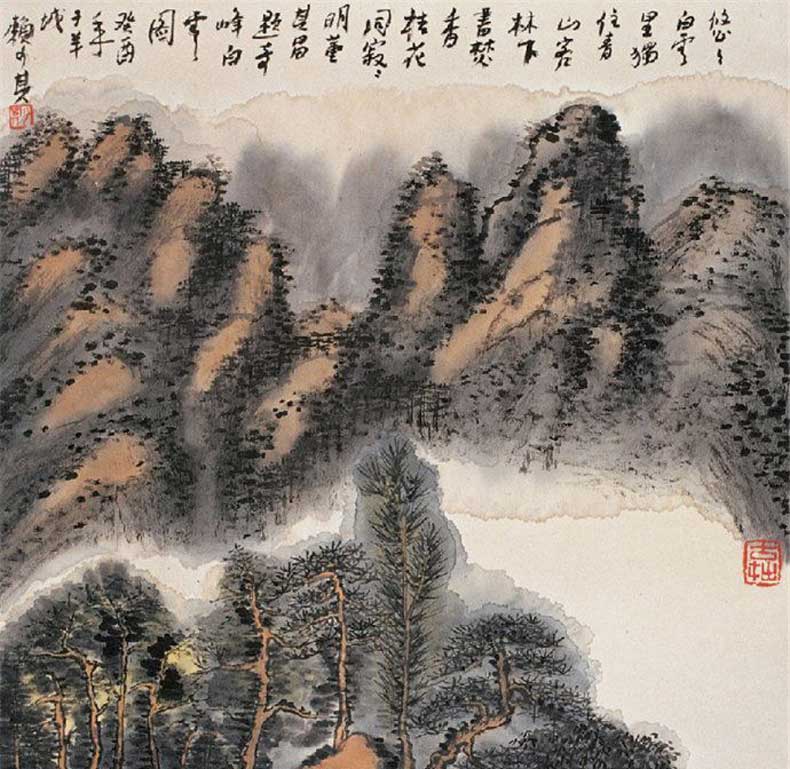 悠〻
白雲
里獨
住青
山客
林下
晝焚
香
桂花
同寂〻
明董
其昌
題奇
峰白
雲
圖
癸酉
年
于羊
城
賴少其